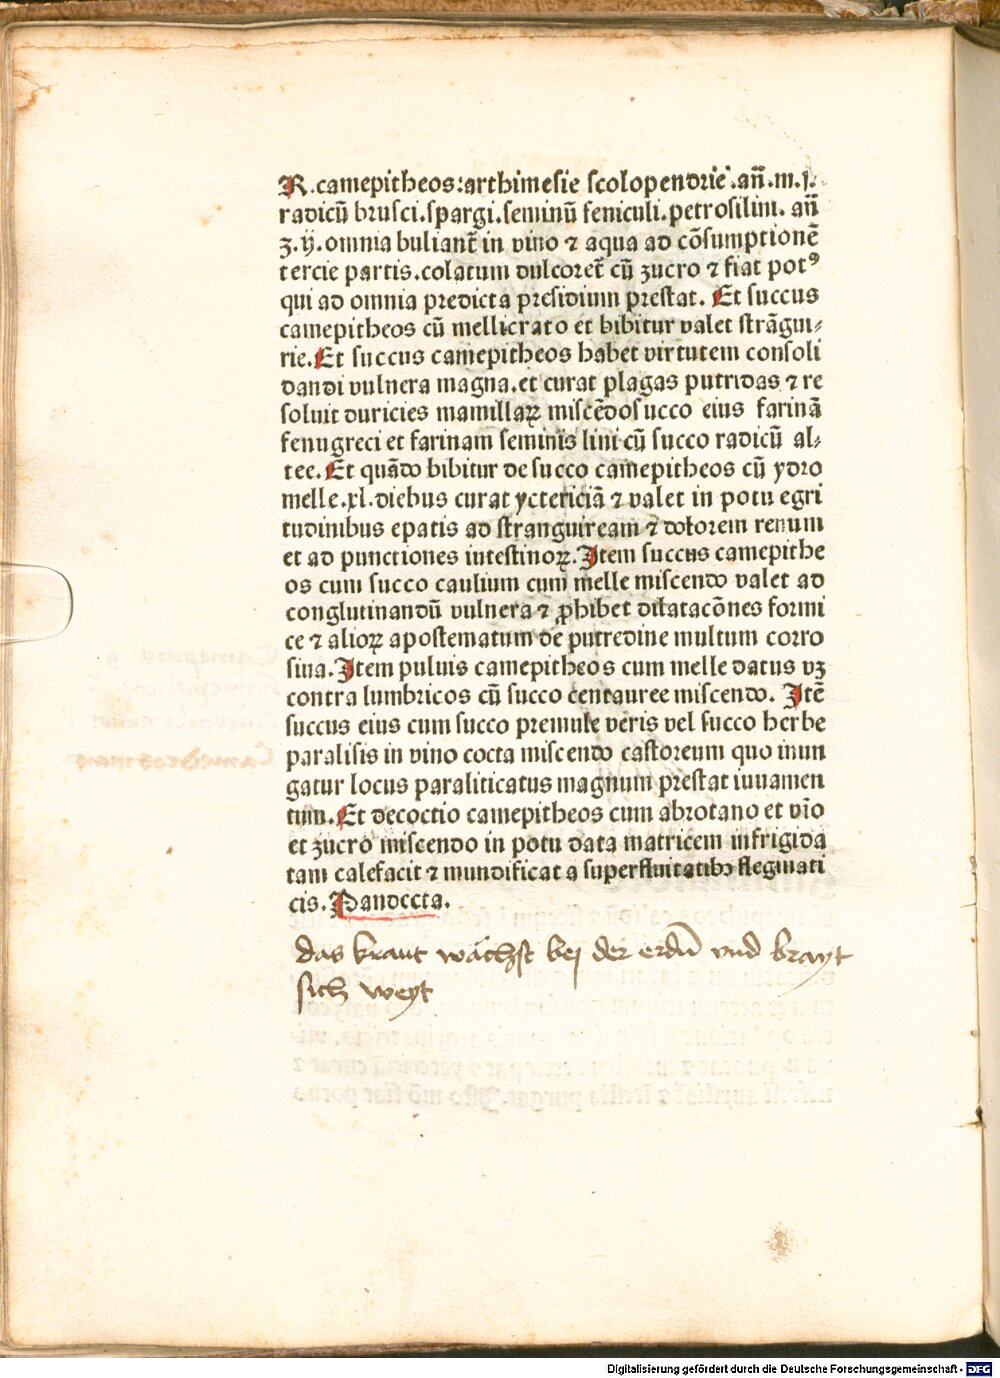 R.camepitheos:arthimesie scolopendrie.añ.m.j.
radicū brusci.spargi.seminū feniculi.petrosilini. añ
ʒ.ij.omnia buliant̄ in vino ⁊ aqua ad cōsumptionē
tercie partis.colatum dulcoret̄ cū zucro ⁊ fiat potꝰ
qui ad omnia predicta presidium prestat. Et succus
camepitheos cū mellicrato et bibitur valet strāgui⸗
rie.Et succus camepitheos habet virtutem consoli
dandi vulnera magna.et curat plagas putridas ⁊ re
soluit duricies mamillaꝝ miscēdo succo eius farinā
fenugreci et farinam seminis lini cū succo radicū al⸗
tee.Et quādo bibitur de succo camepitheos cū ydro
melle.xl.diebus curat yctericiā ⁊ valet in potu egri
tudinibus epatis ad stranguiream ⁊ dolorem renum
et ad punctiones intestinoꝝ.Item succus camepithe
os cum succo caulium cum melle miscendo valet ad
conglutinandū vulnera ⁊ ꝓhibet dilatacōnes formi
ce ⁊ alioꝝ apostematum de putredine multum corro
siua.Item puluis camepitheos cum melle datus vꝫ
contra lumbricos cū succo centauree miscendo. Itē
succus eius cum succo premule veris vel succo herbe
paralisis in vino cocta miscendo castoreum quo inun
gatur locus paraliticatus magnum prestat iuuamen
tum.Et decoctio camepitheos cum abrotano et vīo
et zucro miscendo in potu data matricem infrigida
tam calefacit ⁊ mundificat a superfluitatibꝫ flegmati
cis.Pandecta.
das kraut wächst bej der erdn̄ vnd brayt
sich weyt
Digitalisierung gefördert durch die Deutsche Forschungsgemeinschaft - DFG